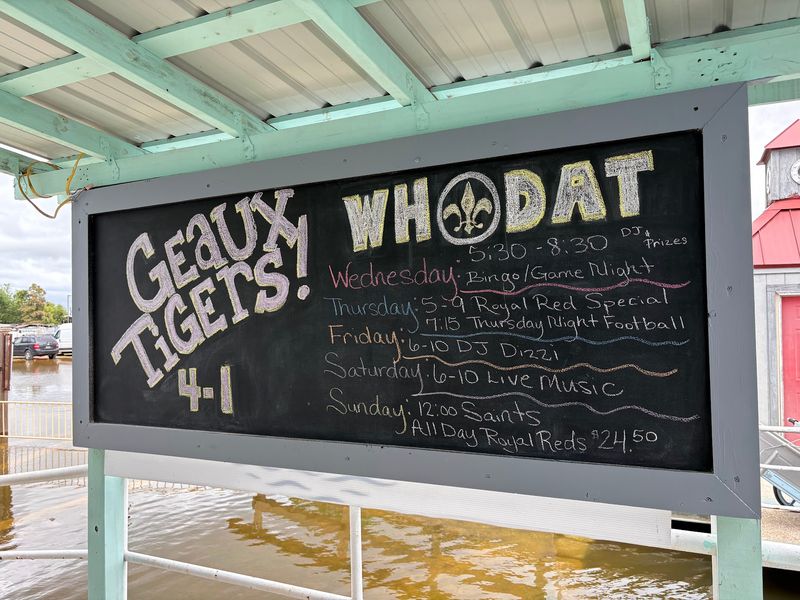 GEAUX
TIGERS!
4-1
WHO DAT
Wednesday: 5:30 - 8:30 DJ & Prizes
Bingo/Game Night
Thursday: 5-9 Royal Red Special
7:15 Thursday Night Football
Friday: 6-10 DJ Dizzi
Saturday: 6-10 Live Music
Sunday: 12:00 Saints
All Day Royal Reds $24.50